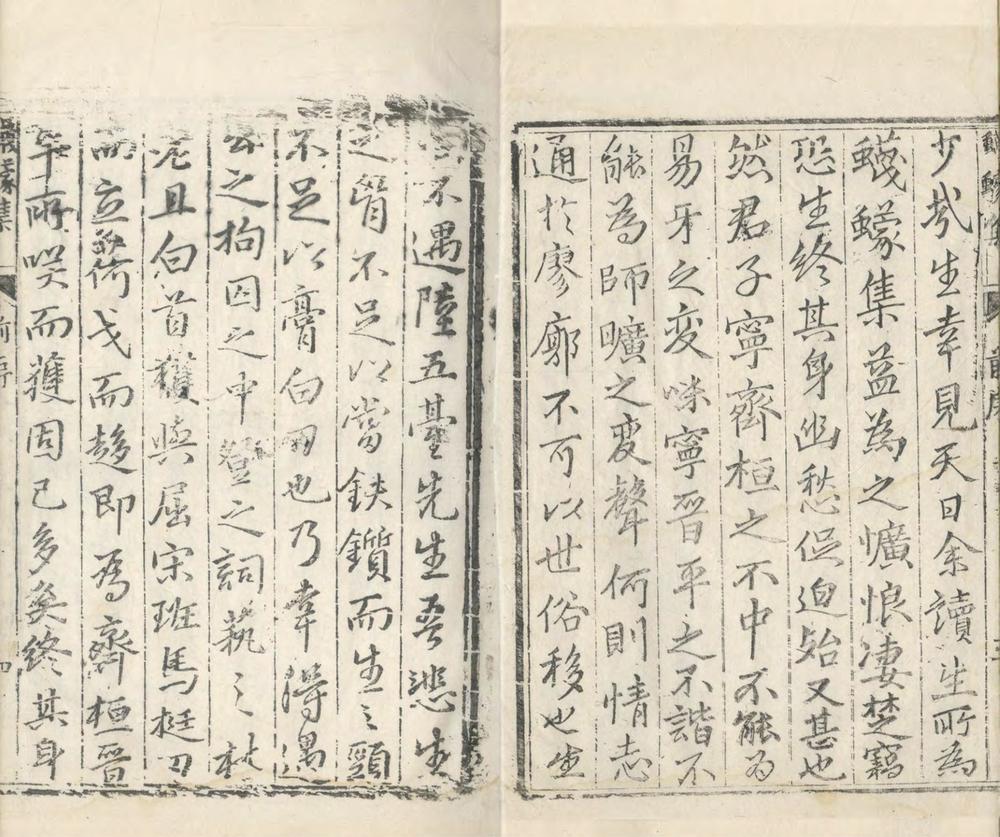 少哉生幸見天日余讀生所為
蠛蠓集益為之懭悢凄楚竊
恐生終其身幽愁促迫始又甚也
然君子寧齊桓之不中不能為
易牙之变味寧晉平之不諧不
能為師曠之变聲何則情志
通於廖廓不可以世俗移也生
不遇陸五臺先生吾悲生
之胷不足以當鈇鑕而生之頸
不足以膏白刃也乃幸得遇
公之拘囚之中登之詞藝之林
老且白首猶與屈宋班馬挺刃
而立荷戈而趍即為齊桓晉
平所哭而獲固已多矣終其身